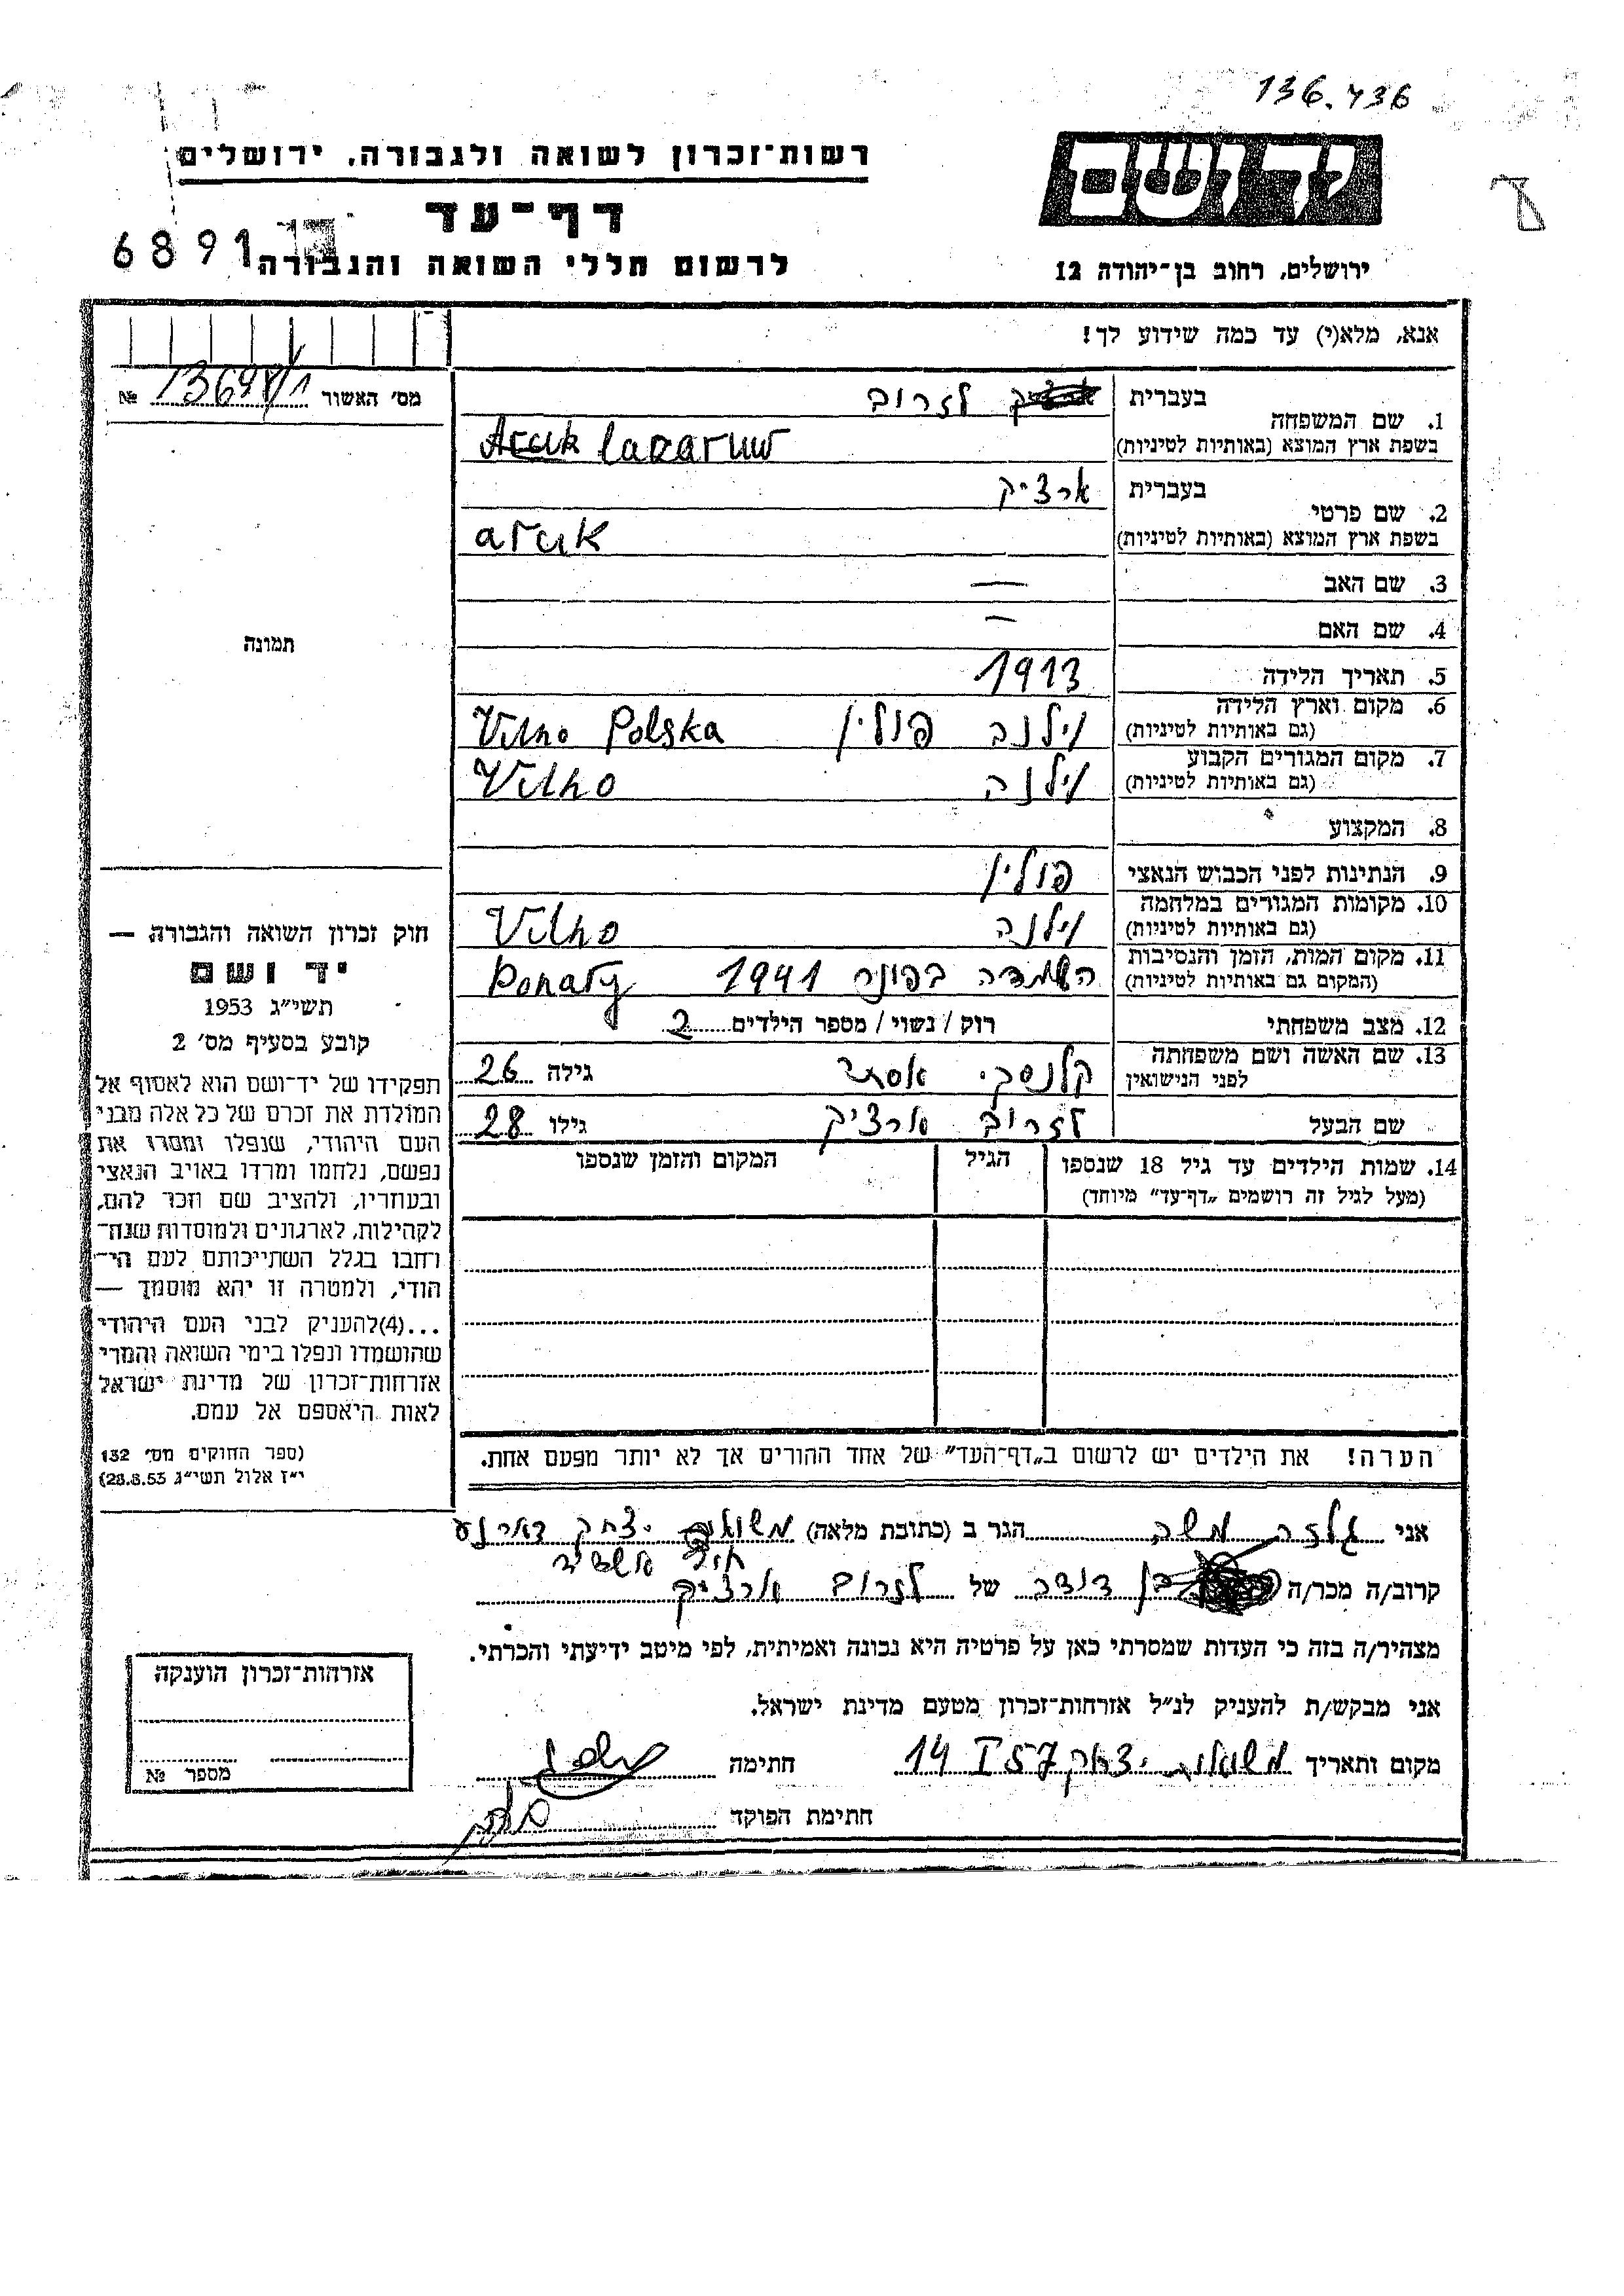 136.436
רשות־זכרון לשואה ולגבורה, ירושלים
יד ושם
דף־עד
6891
לרשום חללי השואה והגבורה
ירושלים, רחוב בן־יהודה 12
אנא, מלא(י) עד כמה שידוע לך!
מס׳ האשור №
בעברית לזרוב
1. שם המשפחה
בשפת ארץ המוצא (באותיות לטיניות) lazaruw
בעברית ארציק
2. שם פרטי
בשפת ארץ המוצא (באותיות לטיניות) arcik
3. שם האב —
4. שם האם —
תמונה
5. תאריך הלידה 1913
6. מקום וארץ הלידה
(גם באותיות לטיניות) וילנה פולין Vilno Polska
7. מקום המגורים הקבוע
(גם באותיות לטיניות) וילנה Vilno
8. המקצוע
9. הנתינות לפני הכבוש הנאצי פולין
10. מקומות המגורים במלחמה
(גם באותיות לטיניות) וילנה Vilno
11. מקום המות, הזמן והנסיבות
(המקום גם באותיות לטיניות) השמדה בפונר 1941 Ponary
12. מצב משפחתי רוק / נשוי / מספר הילדים 2
13. שם האשה ושם משפחתה
לפני הנישואין קלנסקי אסתר גילה 26
שם הבעל לזרוב ארציק גילו 28
14. שמות הילדים עד גיל 18 שנספו הגיל המקום והזמן שנספו
(מעל לגיל זה רושמים „דף־עד” מיוחד)
חוק זכרון השואה והגבורה —
יד ושם
תשי״ג 1953
קובע בסעיף מס׳ 2
תפקידו של יד־ושם הוא לאסוף אל
המולדת את זכרם של כל אלה מבני
העם היהודי, שנפלו ומסרו את
נפשם, נלחמו ומרדו באויב הנאצי
ובעוזריו, ולהציב שם וזכר להם,
לקהילות, לארגונים ולמוסדות שנח־
רחבו בגלל השתייכותם לעם הי־
הודי, ולמטרה זו יהא מוסמך —
...(4)להעניק לבני העם היהודי
שהושמדו ונפלו בימי השואה והמרי
אזרחות־זכרון של מדינת ישראל
לאות היאספם אל עמם.
(ספר החוקים מס׳ 132
י״ז אלול תשי״ג 28.8.53)
הערה! את הילדים יש לרשום ב„דף־העד” של אחד ההורים אך לא יותר מפעם אחת.
אני גלזר משה הגר ב (כתובת מלאה) משואות יצחק
קרוב/ה מכר/ה בן דודו של לזרוב ארציק
מצהיר/ה בזה כי העדות שמסרתי כאן על פרטיה היא נכונה ואמיתית, לפי מיטב ידיעתי והכרתי.
אני מבקש/ת להעניק לנ״ל אזרחות־זכרון מטעם מדינת ישראל.
מקום ותאריך משואות יצחק 14 I 57 חתימה
חתימת הפוקד
אזרחות־זכרון הוענקה
מספר №